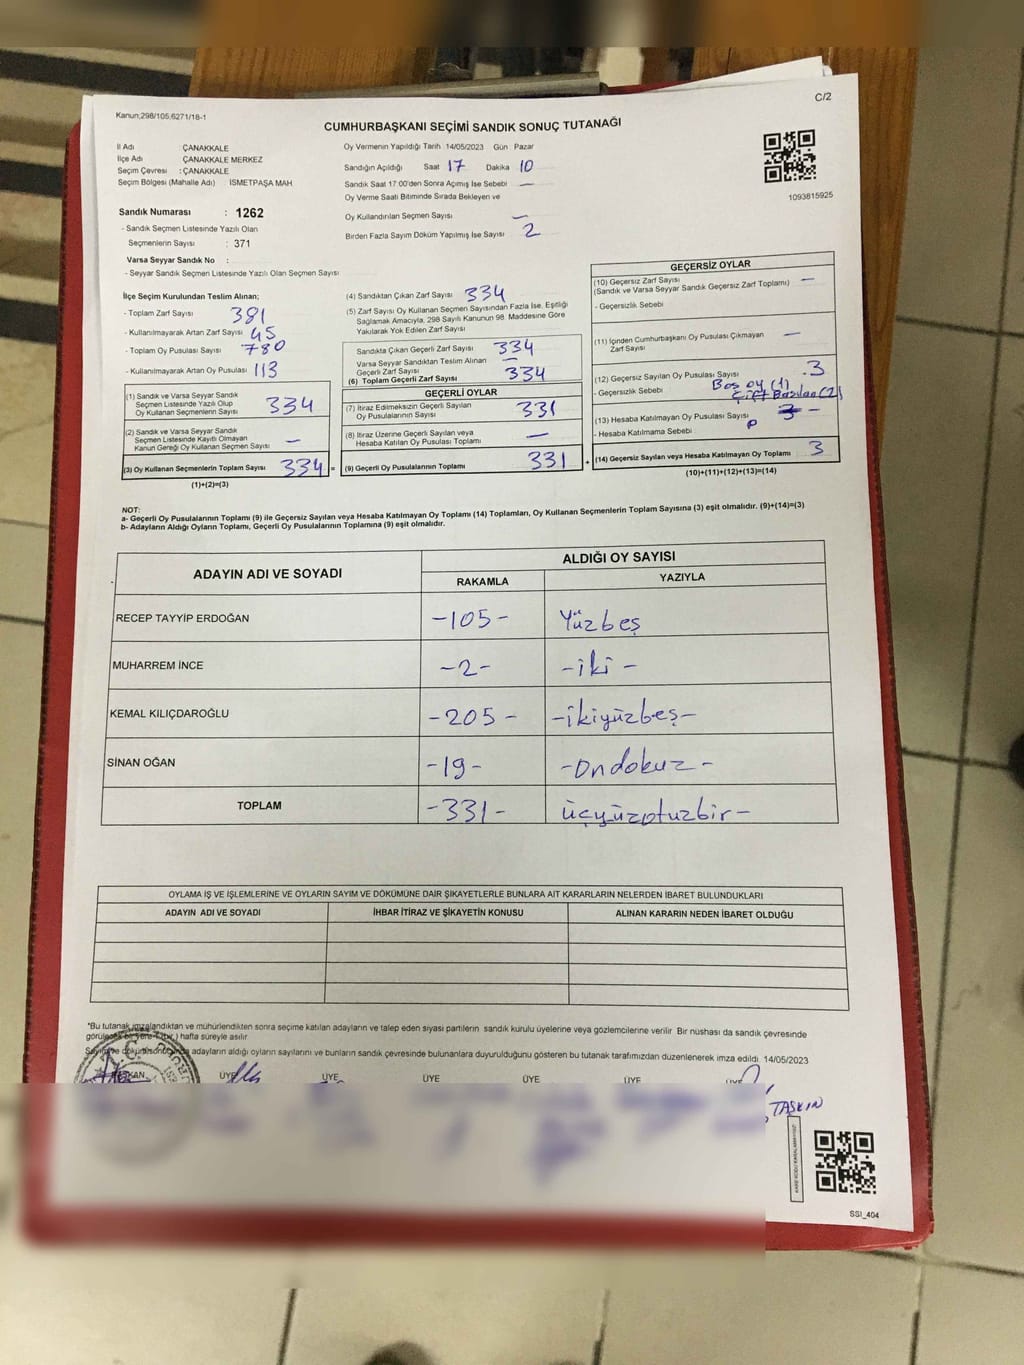 C/2
Kanun,298/105,6271/18-1
CUMHURBAŞKANI SEÇİMİ SANDIK SONUÇ TUTANAĞI
İl Adı ÇANAKKALE
İlçe Adı ÇANAKKALE MERKEZ
Seçim Çevresi : ÇANAKKALE
Seçim Bölgesi (Mahalle Adı) İSMETPAŞA MAH
Oy Vermenin Yapıldığı Tarih 14/05/2023 Gün Pazar
Sandığın Açıldığı Saat 17 Dakika 10
Sandık Saat 17 00'den Sonra Açılmış İse Sebebi —
Oy Verme Saati Bitiminde Sırada Bekleyen ve
Oy Kullandırılan Seçmen Sayısı —
Birden Fazla Sayım Döküm Yapılmış İse Sayısı 2
1093815925
Sandık Numarası : 1262
- Sandık Seçmen Listesinde Yazılı Olan
Seçmenlerin Sayısı : 371
Varsa Seyyar Sandık No :
- Seyyar Sandık Seçmen Listesinde Yazılı Olan Seçmen Sayısı
İlçe Seçim Kurulundan Teslim Alınan;
- Toplam Zarf Sayısı 381
- Kullanılmayarak Artan Zarf Sayısı 45
- Toplam Oy Pusulası Sayısı 780
- Kullanılmayarak Artan Oy Pusulası 113
(1) Sandık ve Varsa Seyyar Sandık
Seçmen Listesinde Yazılı Olup
Oy Kullanan Seçmenlerin Sayısı 334
(2) Sandık ve Varsa Seyyar Sandık
Seçmen Listesinde Kayıtlı Olmayan
Kanun Gereği Oy Kullanan Seçmen Sayısı —
(3) Oy Kullanan Seçmenlerin Toplam Sayısı 334 =
(1)+(2)=(3)
(4) Sandıktan Çıkan Zarf Sayısı 334
(5) Zarf Sayısı Oy Kullanan Seçmen Sayısından Fazla İse, Eşitliği
Sağlamak Amacıyla, 298 Sayılı Kanunun 98. Maddesine Göre
Yakılarak Yok Edilen Zarf Sayısı
Sandıkta Çıkan Geçerli Zarf Sayısı 334
Varsa Seyyar Sandıktan Teslim Alınan
Geçerli Zarf Sayısı —
(6) Toplam Geçerli Zarf Sayısı 334
GEÇERLİ OYLAR
(7) İtiraz Edilmeksizin Geçerli Sayılan
Oy Pusulalarının Sayısı 331
(8) İtiraz Üzerine Geçerli Sayılan veya
Hesaba Katılan Oy Pusulası Toplamı —
(9) Geçerli Oy Pusulalarının Toplamı 331 +
GEÇERSİZ OYLAR
(10) Geçersiz Zarf Sayısı
(Sandık ve Varsa Seyyar Sandık Geçersiz Zarf Toplamı) —
- Geçersizlik Sebebi
(11) İçinden Cumhurbaşkanı Oy Pusulası Çıkmayan
Zarf Sayısı —
(12) Geçersiz Sayılan Oy Pusulası Sayısı 3
- Geçersizlik Sebebi Boş oy (1)
Çift Basılan (2)
(13) Hesaba Katılmayan Oy Pusulası Sayısı —
- Hesaba Katılmama Sebebi
(14) Geçersiz Sayılan veya Hesaba Katılmayan Oy Toplamı 3
(10)+(11)+(12)+(13)=(14)
NOT:
a- Geçerli Oy Pusulalarının Toplamı (9) ile Geçersiz Sayılan veya Hesaba Katılmayan Oy Toplamı (14) Toplamları, Oy Kullanan Seçmenlerin Toplam Sayısına (3) eşit olmalıdır. (9)+(14)=(3)
b- Adayların Aldığı Oyların Toplamı, Geçerli Oy Pusulalarının Toplamına (9) eşit olmalıdır.
ADAYIN ADI VE SOYADI ALDIĞI OY SAYISI
RAKAMLA YAZIYLA
RECEP TAYYİP ERDOĞAN -105- Yüzbeş
MUHARREM İNCE -2- -iki-
KEMAL KILIÇDAROĞLU -205- -ikiyüzbeş-
SİNAN OĞAN -19- -Ondokuz-
TOPLAM -331- üçyüzotuzbir-
OYLAMA İŞ VE İŞLEMLERİNE VE OYLARIN SAYIM VE DÖKÜMÜNE DAİR ŞİKAYETLERLE BUNLARA AİT KARARLARIN NELERDEN İBARET BULUNDUKLARI
ADAYIN ADI VE SOYADI İHBAR İTİRAZ VE ŞİKAYETİN KONUSU ALINAN KARARIN NEDEN İBARET OLDUĞU
*Bu tutanak imzalandıktan ve mühürlendikten sonra seçime katılan adayların ve talep eden siyasi partilerin sandık kurulu üyelerine veya gözlemcilerine verilir Bir nüshası da sandık çevresinde
görülecek bir yere 1 (bir) hafta süreyle asılır
Sayım ve döküm sonunda adayların aldığı oyların sayılarını ve bunların sandık çevresinde bulunanlara duyurulduğunu gösteren bu tutanak tarafımızdan düzenlenerek imza edildi. 14/05/2023
BAŞKAN ÜYE ÜYE ÜYE ÜYE ÜYE ÜYE
TAŞKIN
SSI_404